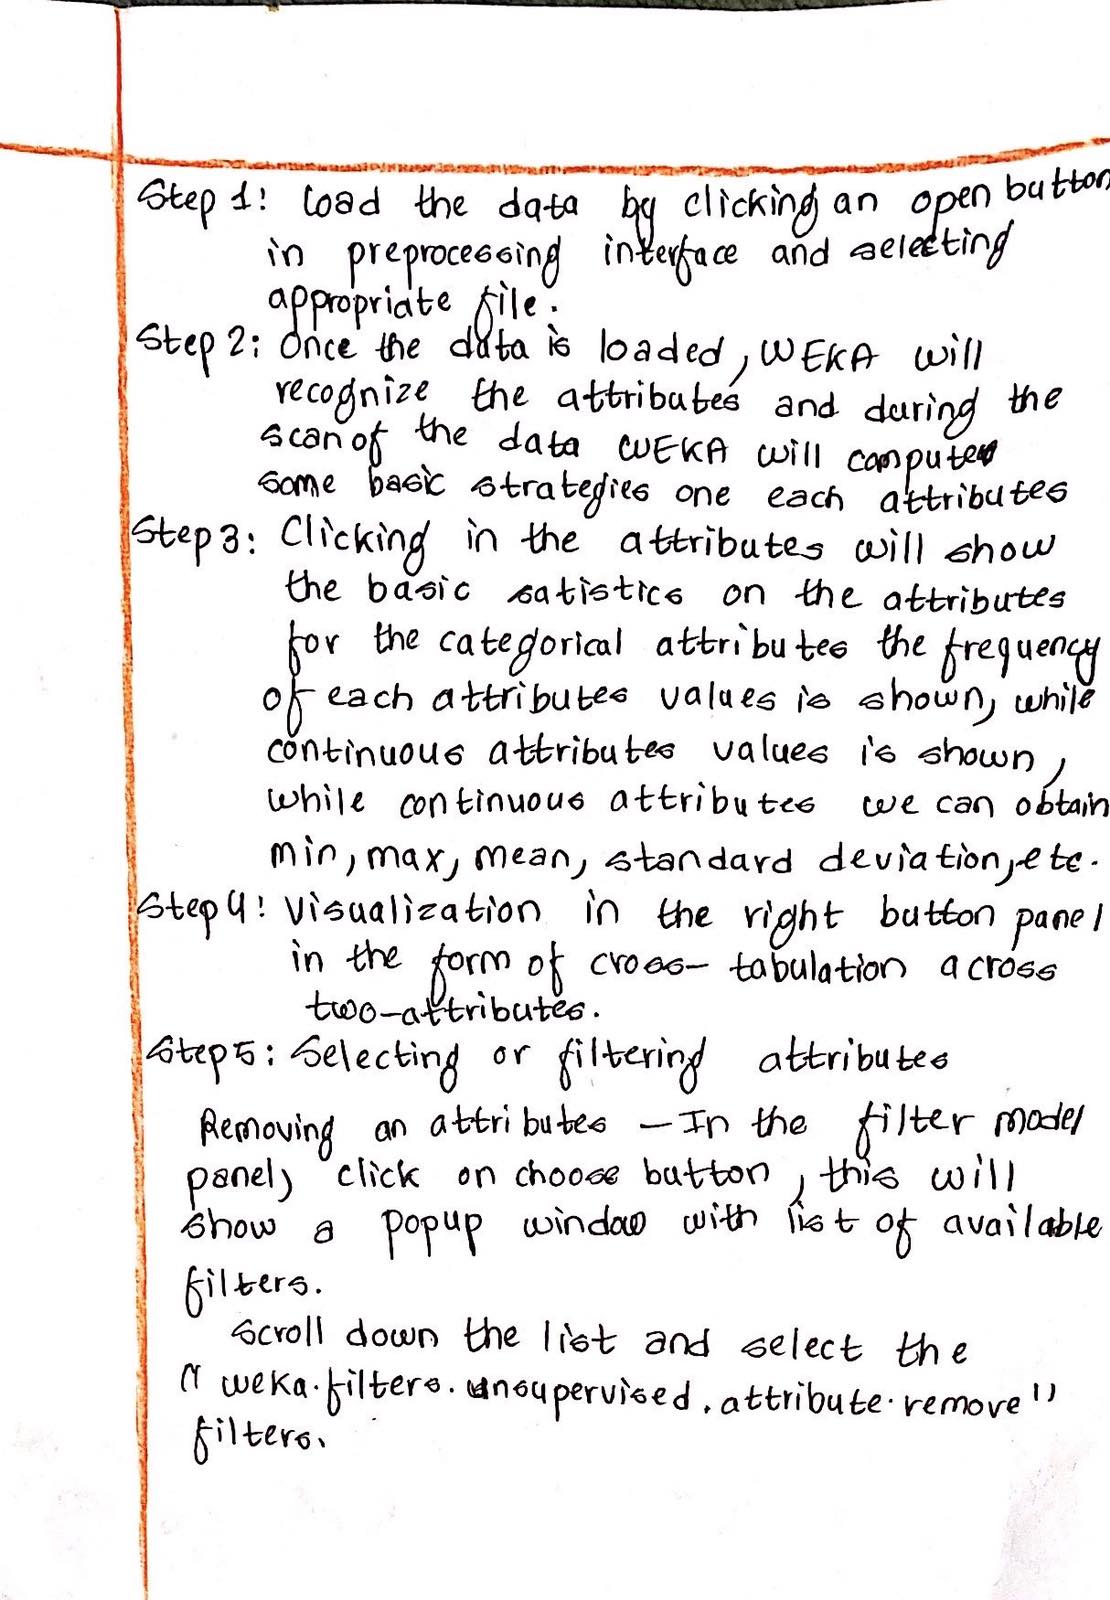 Step 1: Load the data by clicking an open button
in preprocessing interface and selecting
appropriate file.
Step 2: Once the data is loaded, WEKA will
recognize the attributes and during the
scan of the data WEKA will computes
some basic strategies one each attributes
Step 3: Clicking in the attributes will show
the basic satistics on the attributes
for the categorical attributes the frequency
of each attributes values is shown, while
continuous attributes values is shown,
while continuous attributes we can obtain
min, max, mean, standard deviation, etc.
Step 4: Visualization in the right button panel
in the form of cross-tabulation across
two-attributes.
Step 5: Selecting or filtering attributes
Removing an attributes - In the filter model
panel, click on choose button, this will
show a popup window with list of available
filters.
Scroll down the list and select the
"weka.filters.unsupervised.attribute.remove"
filters.